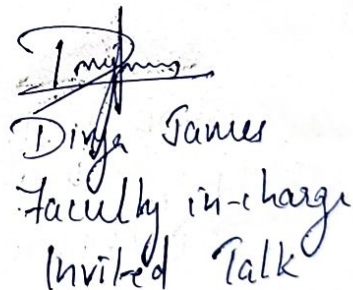 Divya James
Faculty in-charge
Invited Talk